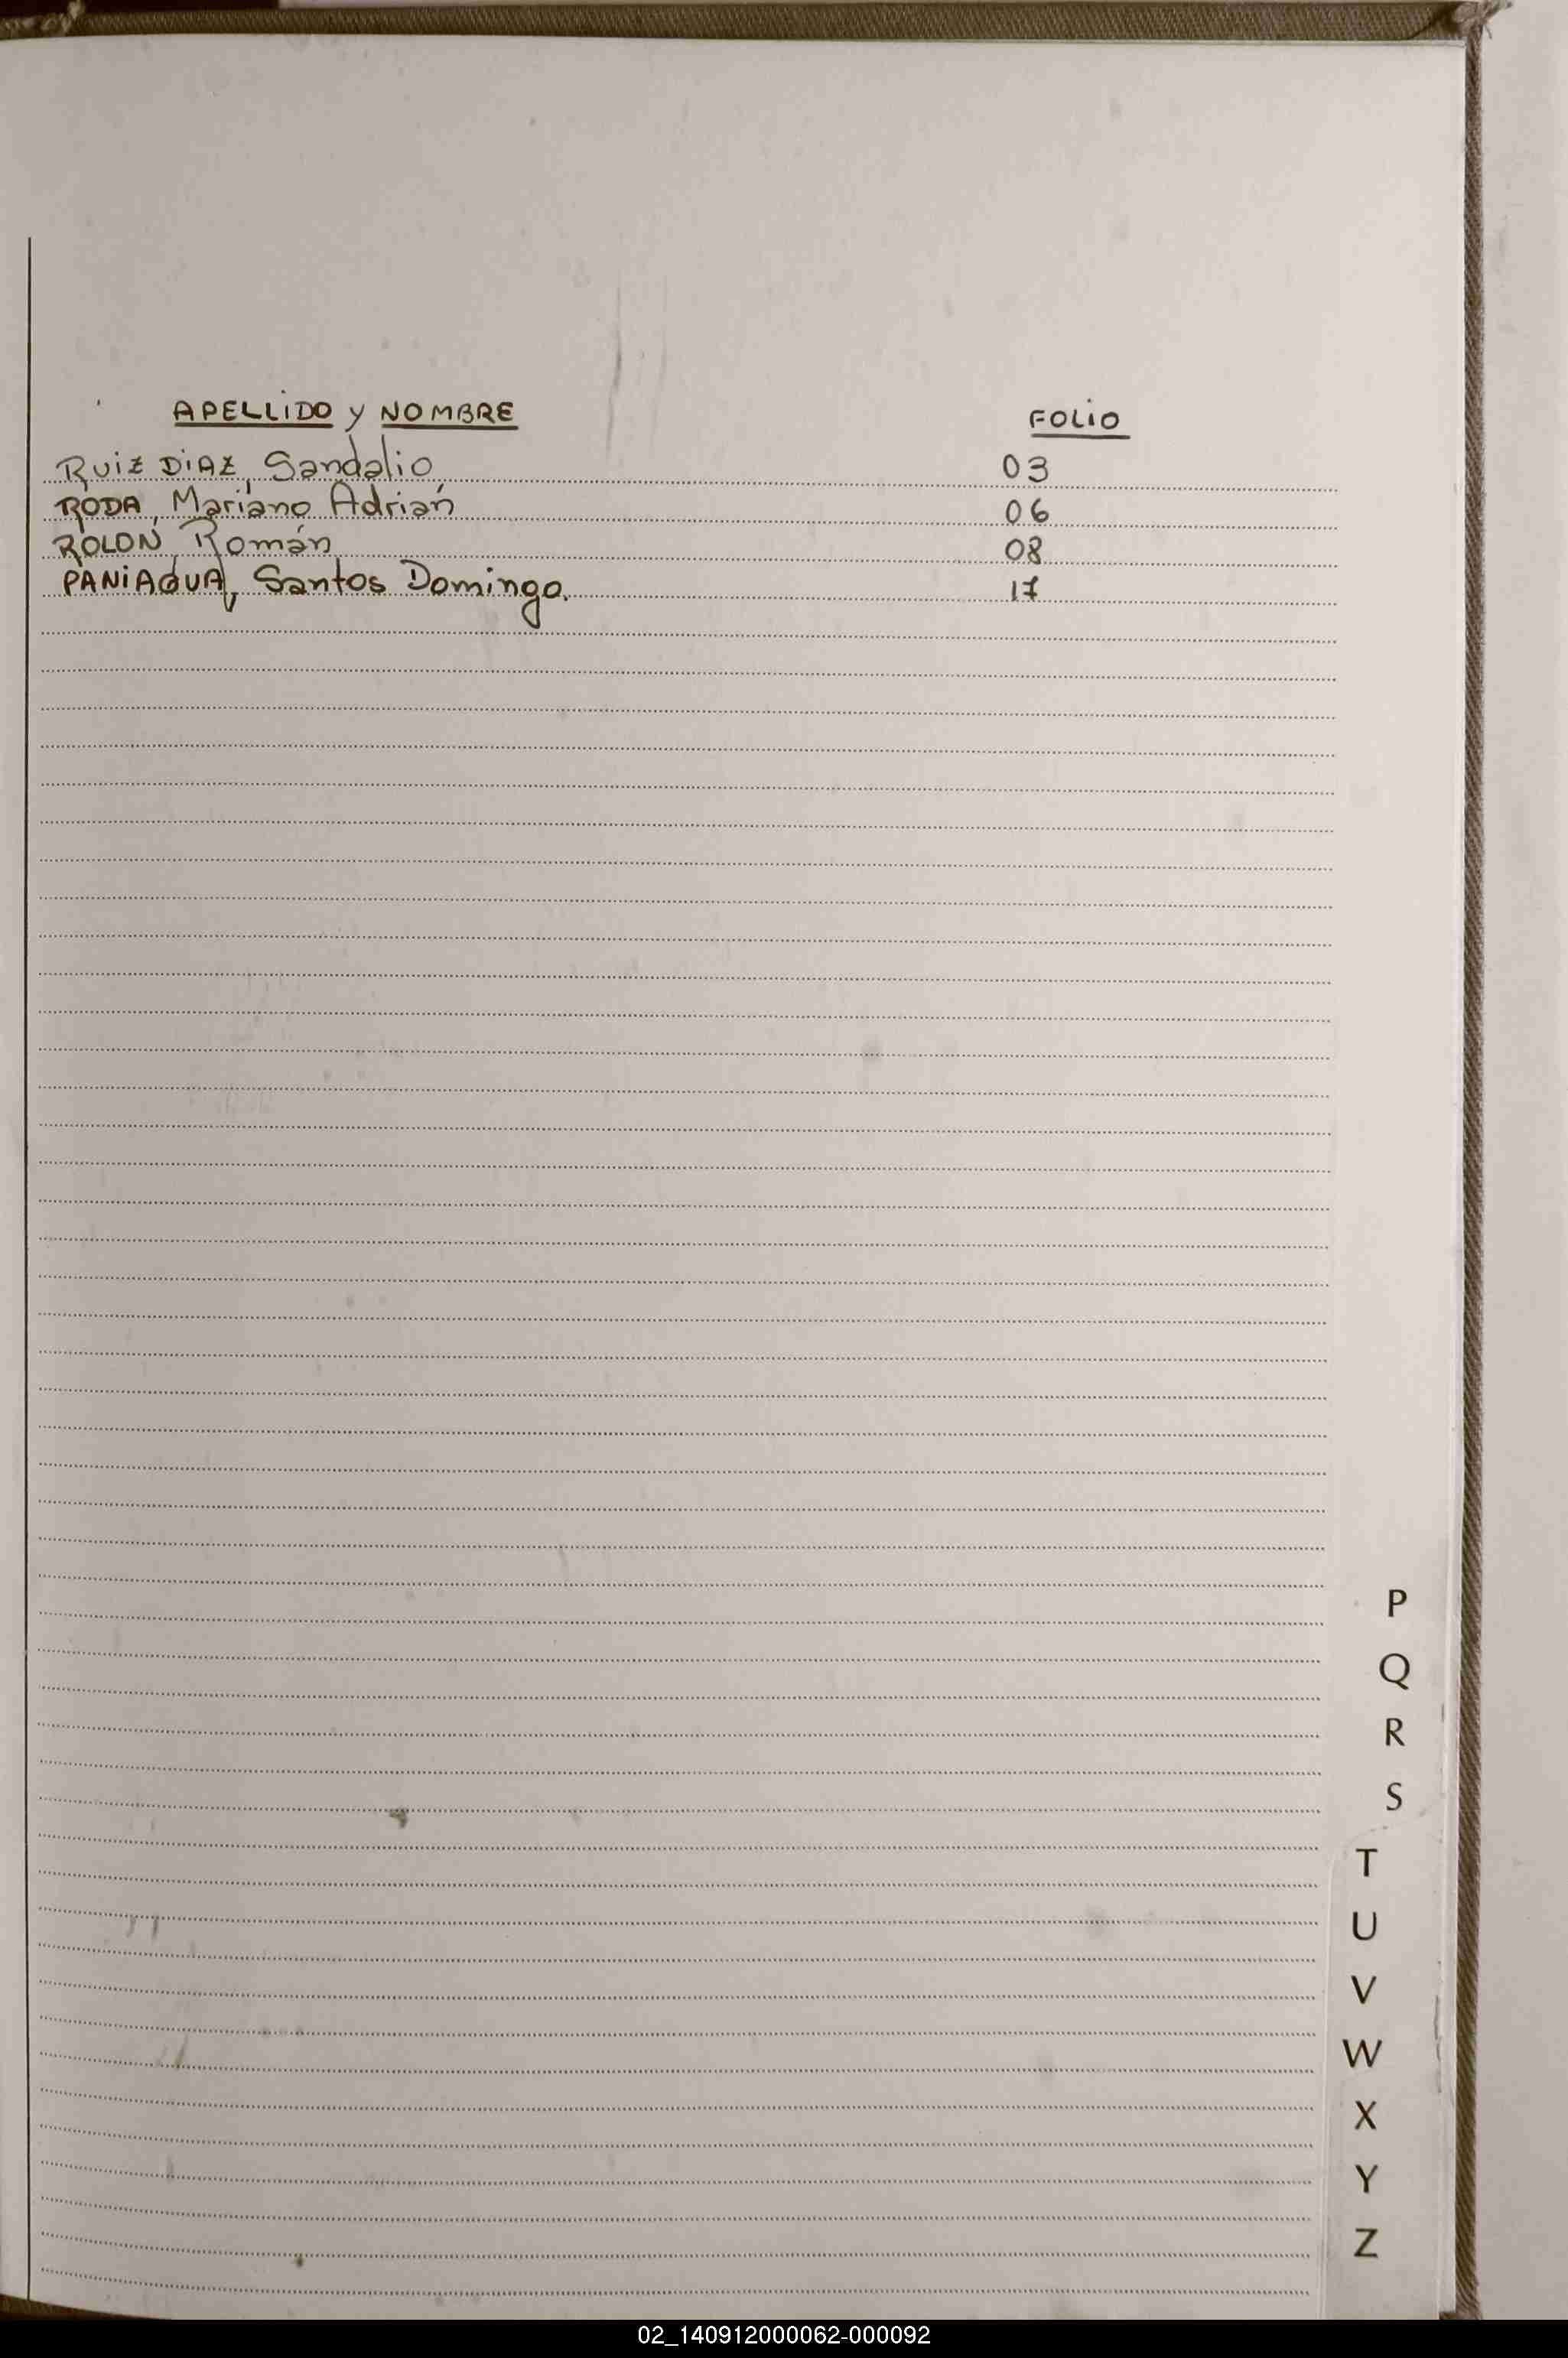 APELLIDO y NOMBRE FOLIO
RUIZ DIAZ, Sandalio 03
RODA, Mariano Adrián 06
ROLON, Román 08
PANIAGUA, Santos Domingo. 17
P
Q
R
S
T
U
V
W
X
Y
Z
02_140912000062-000092